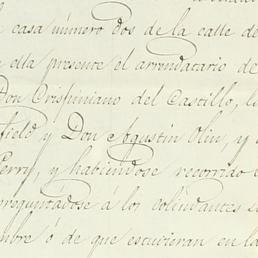 casa número dos de la calle de
ella presente el arrendatario de
Don Crispiniano del Castillo, 
field y Don Agustin Olin, y
Perry, y habiendose recorrido
preguntádose á los colindantes
mbre ó de que estuvieran en la